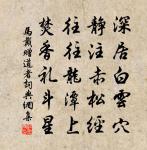 深居白雲穴
靜注赤松經
往往龍潭上
焚香禮斗星
馬戴贈道者詞典網集